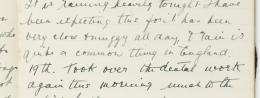 It is raining heavily tonight & have
been expecting this for it has been
very close & muggy all day & rain is
quite a common thing in England.
19th. Took over the dental work
again this morning much to the